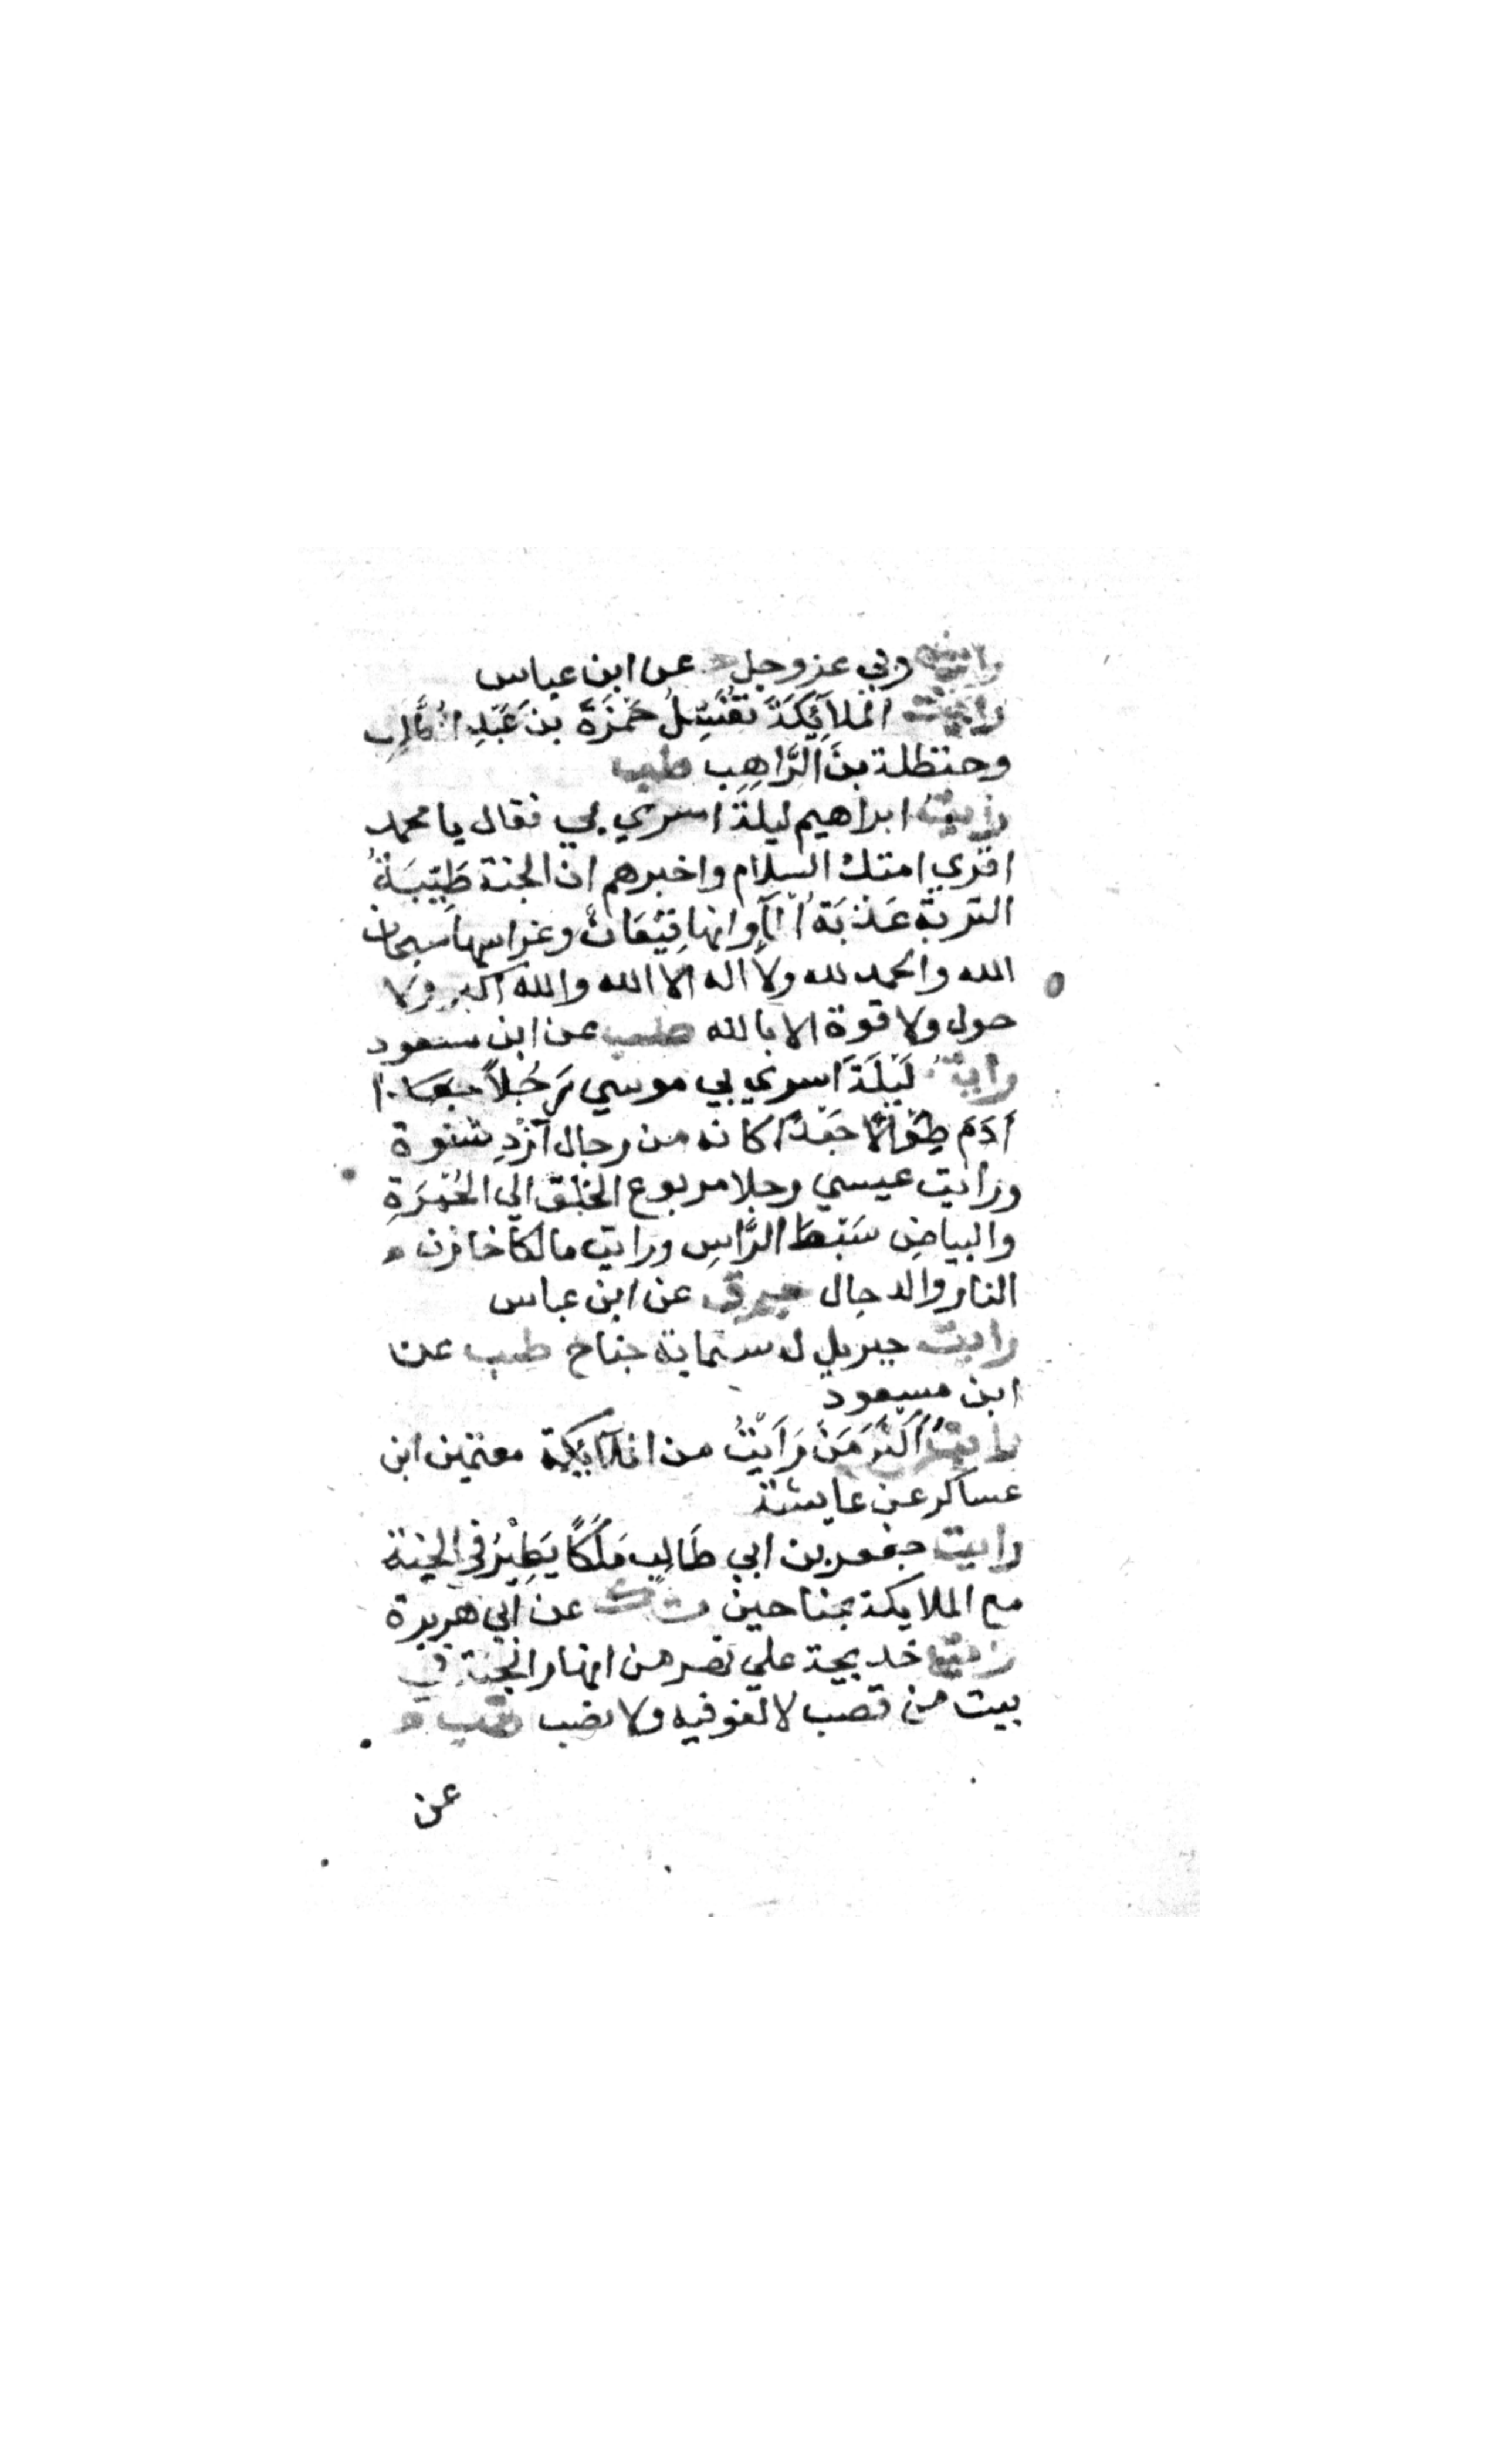 رايت ربي عز وجل عن ابن عباس
رايت الملائكةَ تغُسِّلُ حَمْزَةَ بنَ عَبْدِ المطلب
وحنظلة بنَ الرَّاهِبِ طب
رايت ابراهيم ليلةَ اسري بي فقال يا محمد
اقري امتك السلام واخبرهم ان الجنة طَيِّبَةُ
التربة عَذْبَةُ الما وانها قيْعَانٌ وغراسها سبحان
الله والحمد لله ولا اله الا الله والله اكبر ولا
حول ولا قوة الا بالله طب عن ابن مسعود
رايت لَيْلَةَ اسري بي موسي رَجُلاً
آدَمَ طِوَالاً جَعْدًا كانه من رجال ازْدِ شنوة
ورايت عيسي رجلا مربوع الخلق الي الحُمْرَةِ
والبياضِ سَبْطَ الرَّاسِ ورايت مالكا خازن
النار والدجال حم ق عن ابن عباس
رايت جبريل له ستماية جناح طب عن
ابن مسعود
رايتُ اَكْثَرَ مَنْ رَاَيْتُ من الملايكة معتمين ابن
عساكر عن عايشة
رايت جعفر بن ابي طَالِب مَلَكًا يَطِيْرُ في الجنة
مع الملايكة بجناحين ت ك عن ابي هريرة
رايت خديجة علي نهر من انهار الجنة في
بيت من قصب لا لغو فيه ولا نصب طب
عن